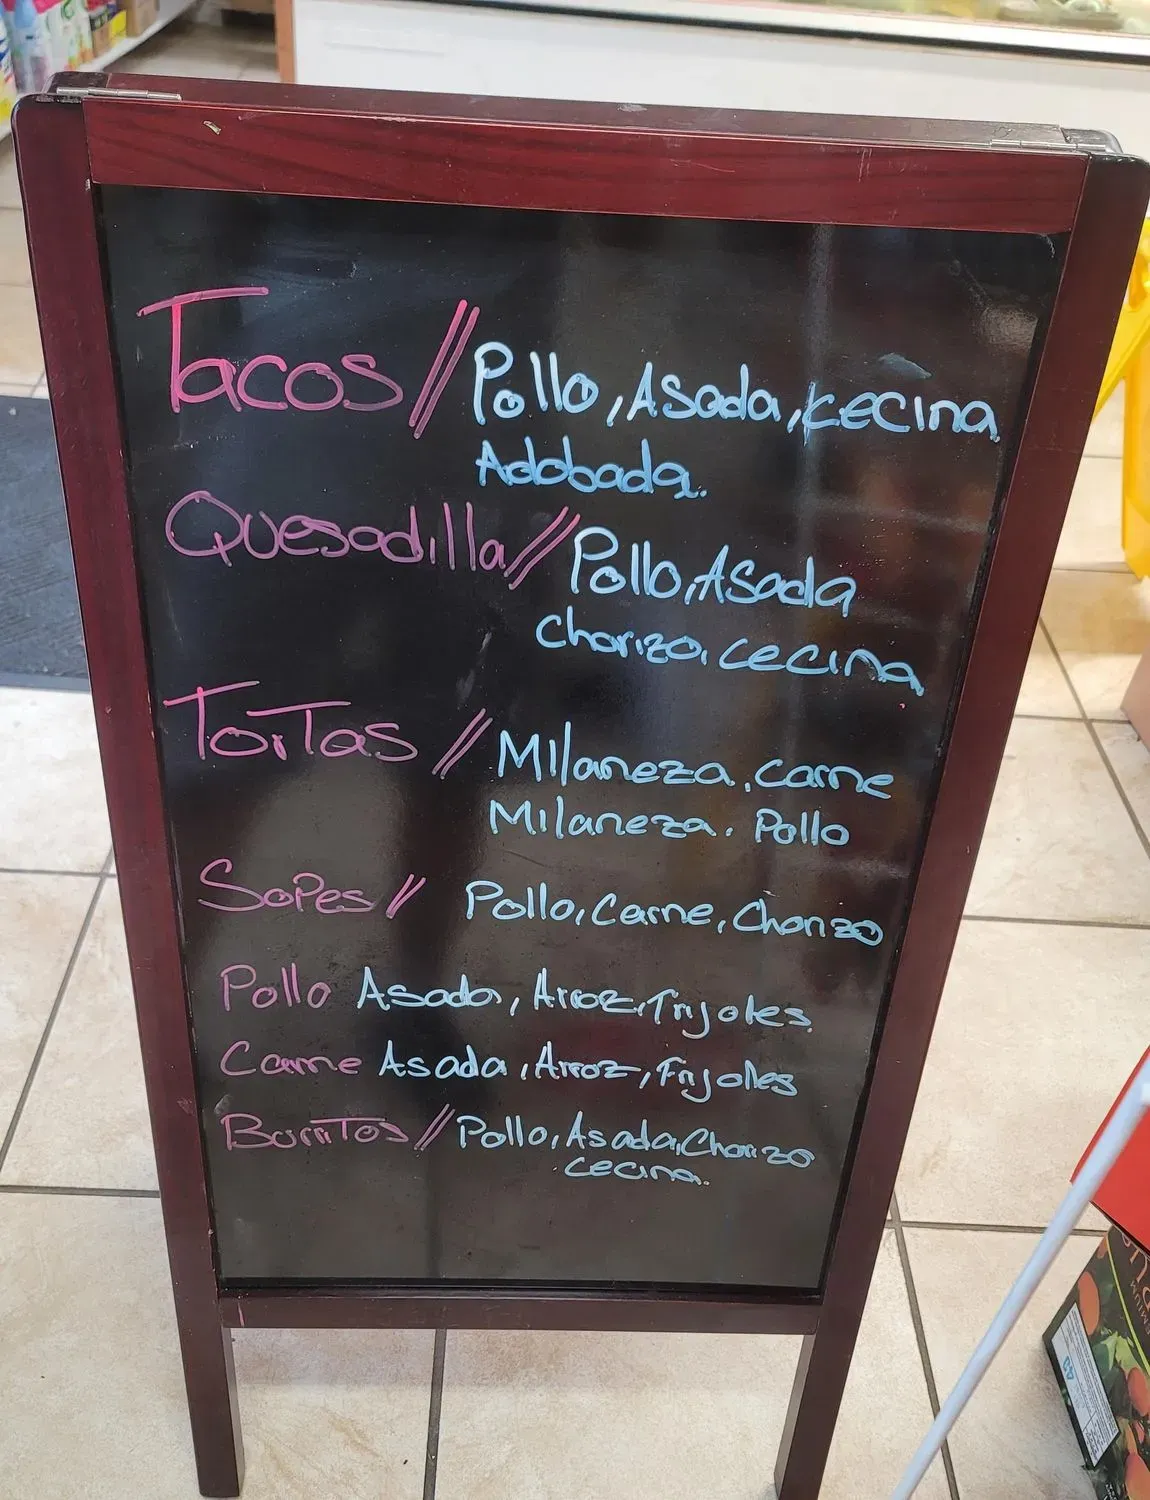 Tacos // Pollo, Asada, cecina
Adobada.
Quesadilla // Pollo, Asada
Chorizo, cecina
Tortas // Milaneza, carne
Milaneza. Pollo
Sopes // Pollo, Carne, Chorizo
Pollo Asado, Arroz, Frijoles
Carne Asada, Arroz, Frijoles
Burritos // Pollo, Asada, Chorizo
cecina.